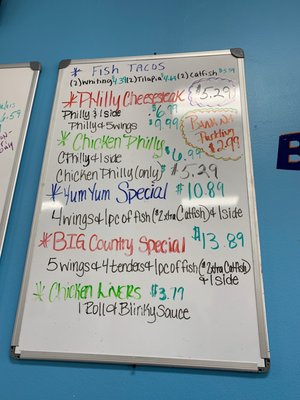 * Fish Tacos
(2) Whiting 4.39 (2) Tilapia 4.69 (2) Catfish $5.79
* Philly Cheesesteak $5.29
Philly & 1 side $6.99
Philly & 5 wings $9.99
Banana Pudding $2.99
* Chicken Philly
CPhilly & 1 side $6.99
Chicken Philly (only) $5.29
* Yum Yum Special $10.89
4 wings & 1 pc of fish ($2 xtra Catfish) & 1 side
* BIG Country Special $13.89
5 wings & 4 tenders & 1 pc of fish ($2 xtra Catfish)
& 1 side
* Chicken Livers $3.79
1 Roll of Blinky Sauce